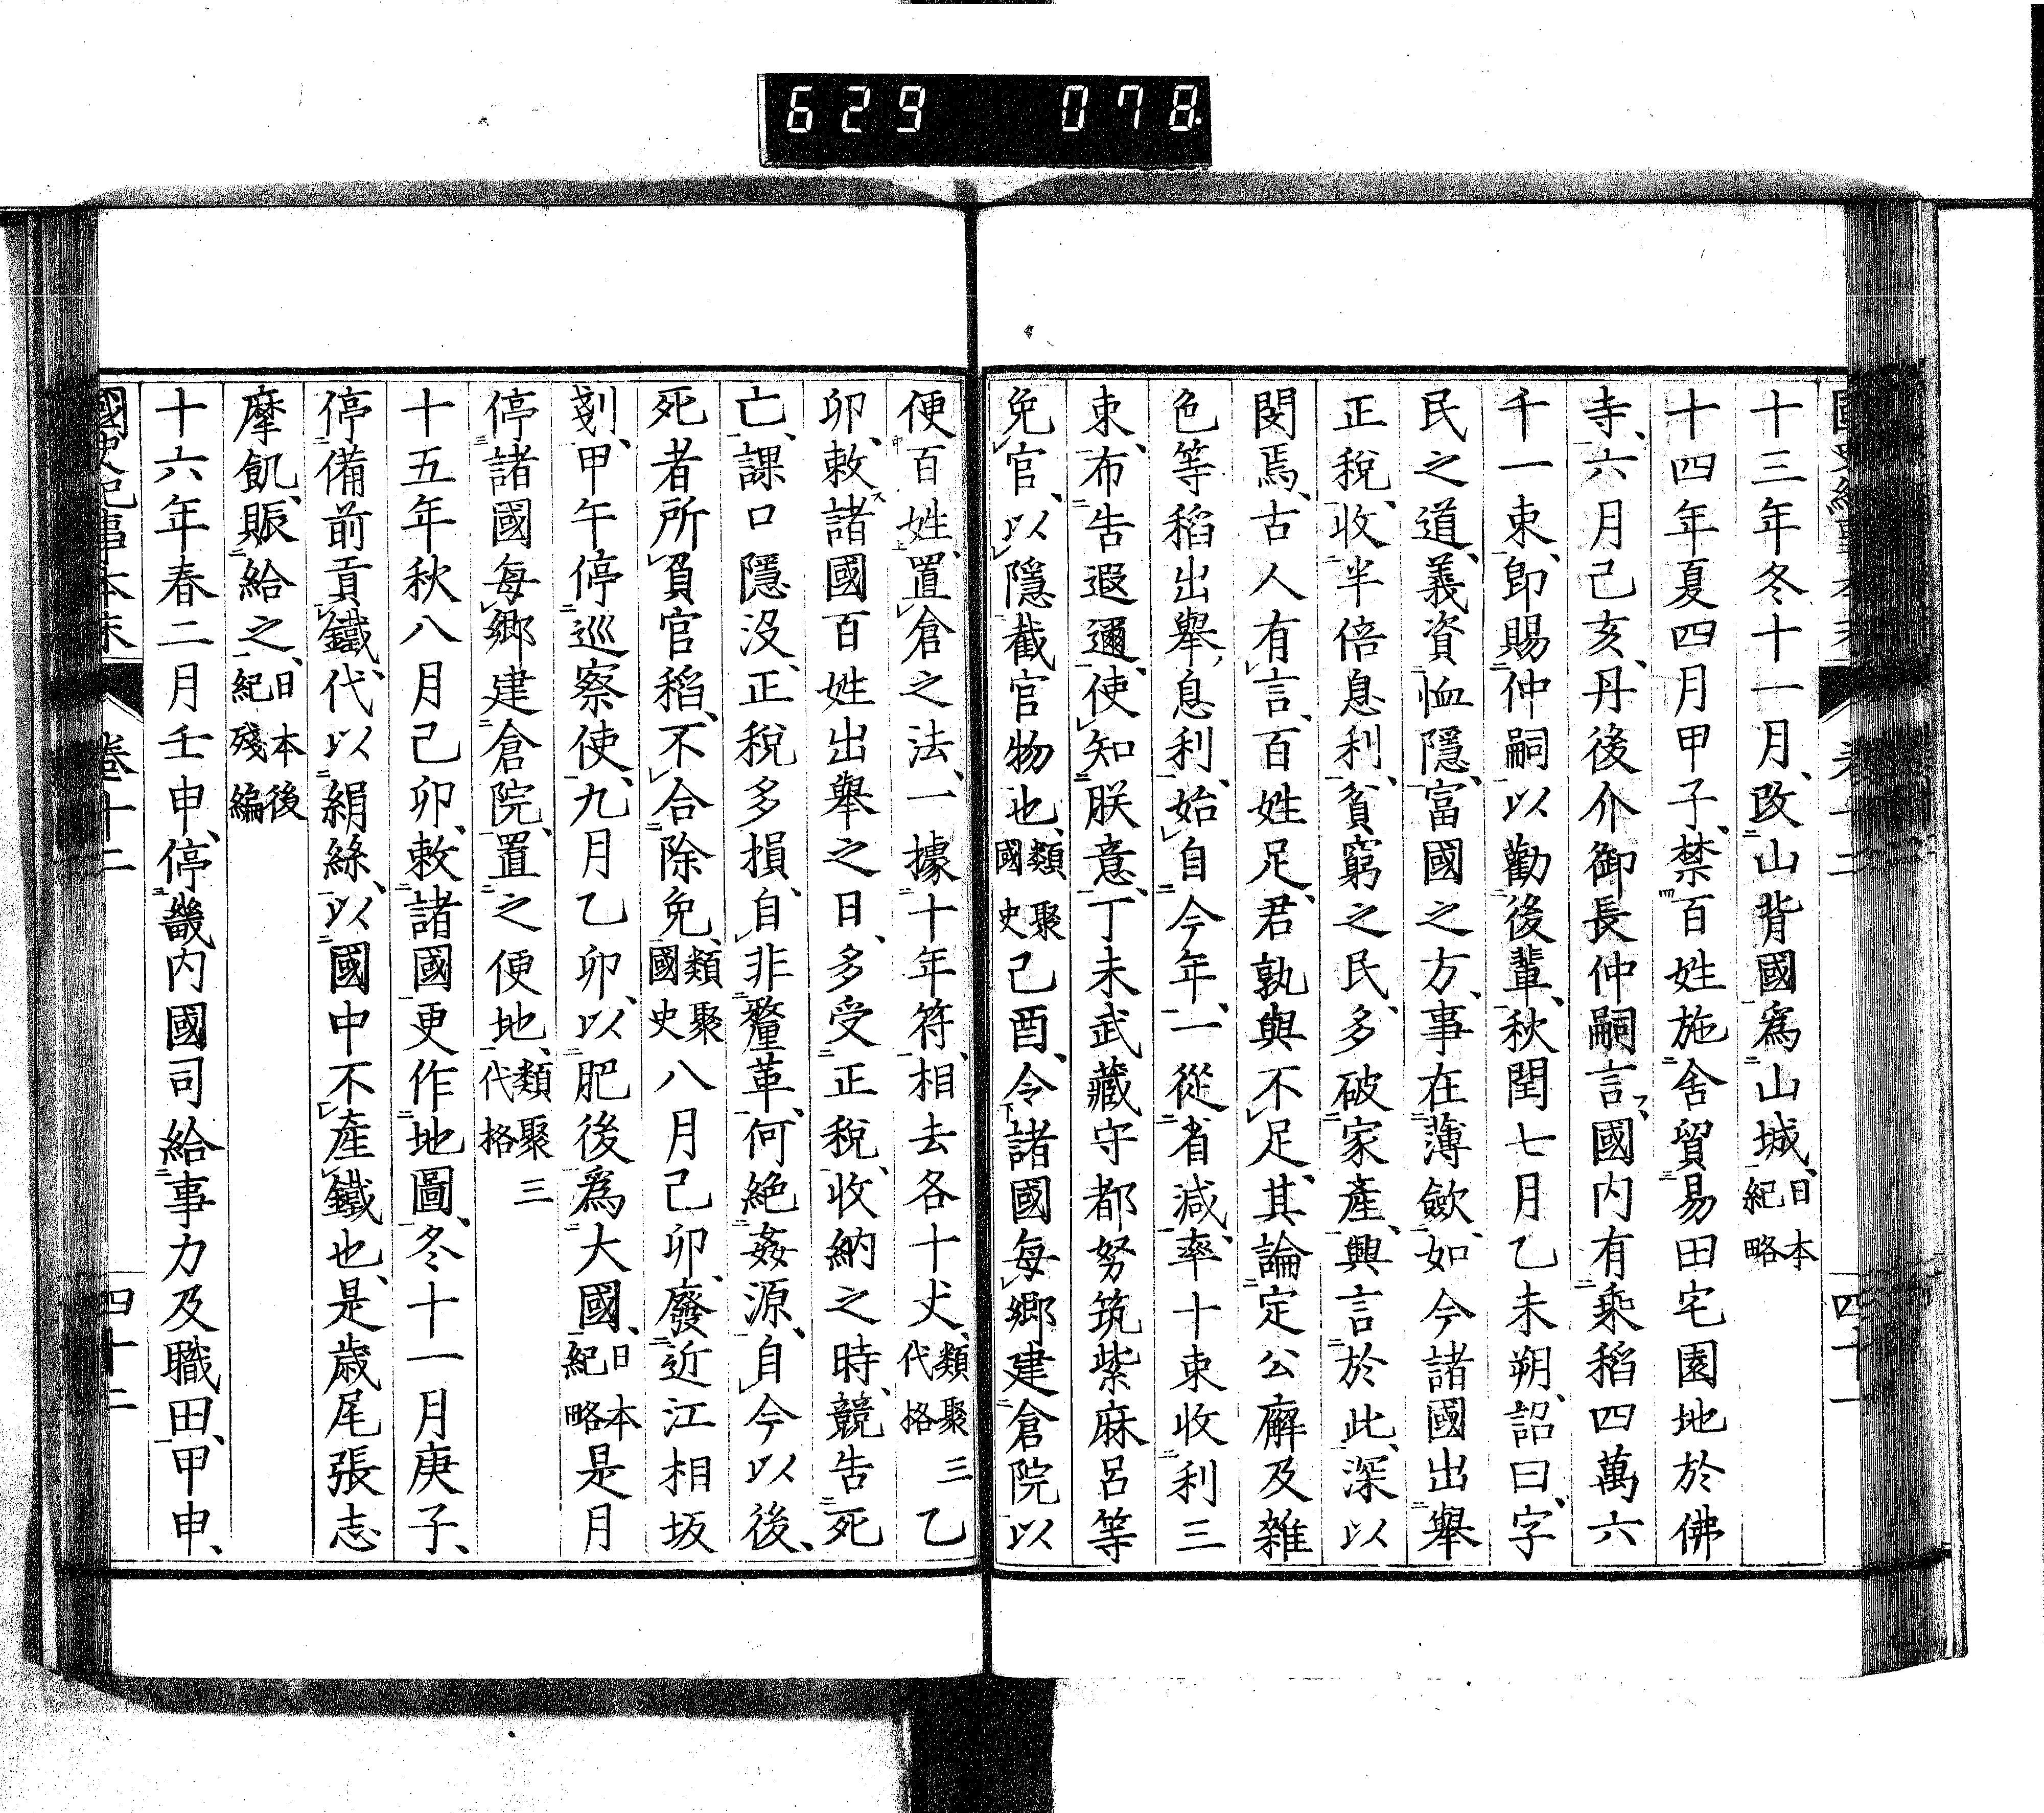 629 078
十三年冬十一月、改山背國爲山城、日本紀略
十四年夏四月甲子、禁百姓施舍貿易田宅園地於佛
寺、六月己亥、丹後介御長仲嗣言、國内有乘稻四萬六
千一束、卽賜仲嗣以勸後輩、秋閏七月乙未朔、詔曰、字
民之道、義資恤隱、富國之方、事在薄斂、如今諸國出舉
正稅、收半倍息利、貧窮之民、多破家產、興言於此、深以
閔焉、古人有言、百姓足、君孰與不足、其論定公廨及雜
色等稻出舉、息利、始自今年、一從省減、率十束收利三
束、布告遐邇、使知朕意、丁未武藏守都努筑紫麻呂等
免官、以隱截官物也、類聚國史己酉、令諸國每鄉建倉院以
便百姓、置倉之法、一據十年符、相去各十丈、類聚三代格乙
卯、敕諸國百姓出舉之日、多受正稅、收納之時、競告死
亡、課口隱沒、正稅多損、自非釐革、何絕姦源、自今以後、
死者所負官稻、不合除免、類聚國史八月己卯、廢近江相坂
剗、甲午停巡察使、九月乙卯、以肥後爲大國、日本紀略是月
停諸國每鄉建倉院、置之便地、類聚三代格
十五年秋八月己卯、敕諸國更作地圖、冬十一月庚子、
停備前貢鐵、代以絹絲、以國中不產鐵也、是歲尾張志
摩飢、賑給之、日本後紀殘編
十六年春二月壬申、停畿内國司給事力及職田、甲申、
國史紀事本末 卷十二 四十二